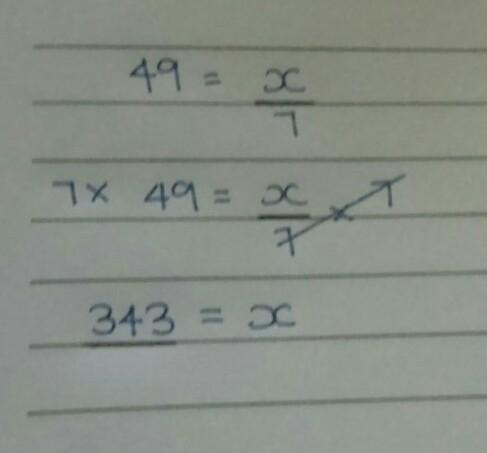 49 = x/7
7 × 49 = x/7 × 7
343 = x